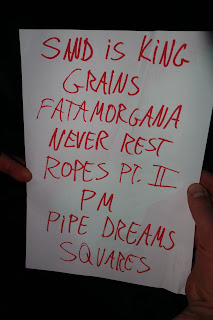 SAND iS KiNG
GRAINS
FATAMORGANA
NEVER REST
ROPES PT. II
PM
PiPE DREAMS
SQUARES